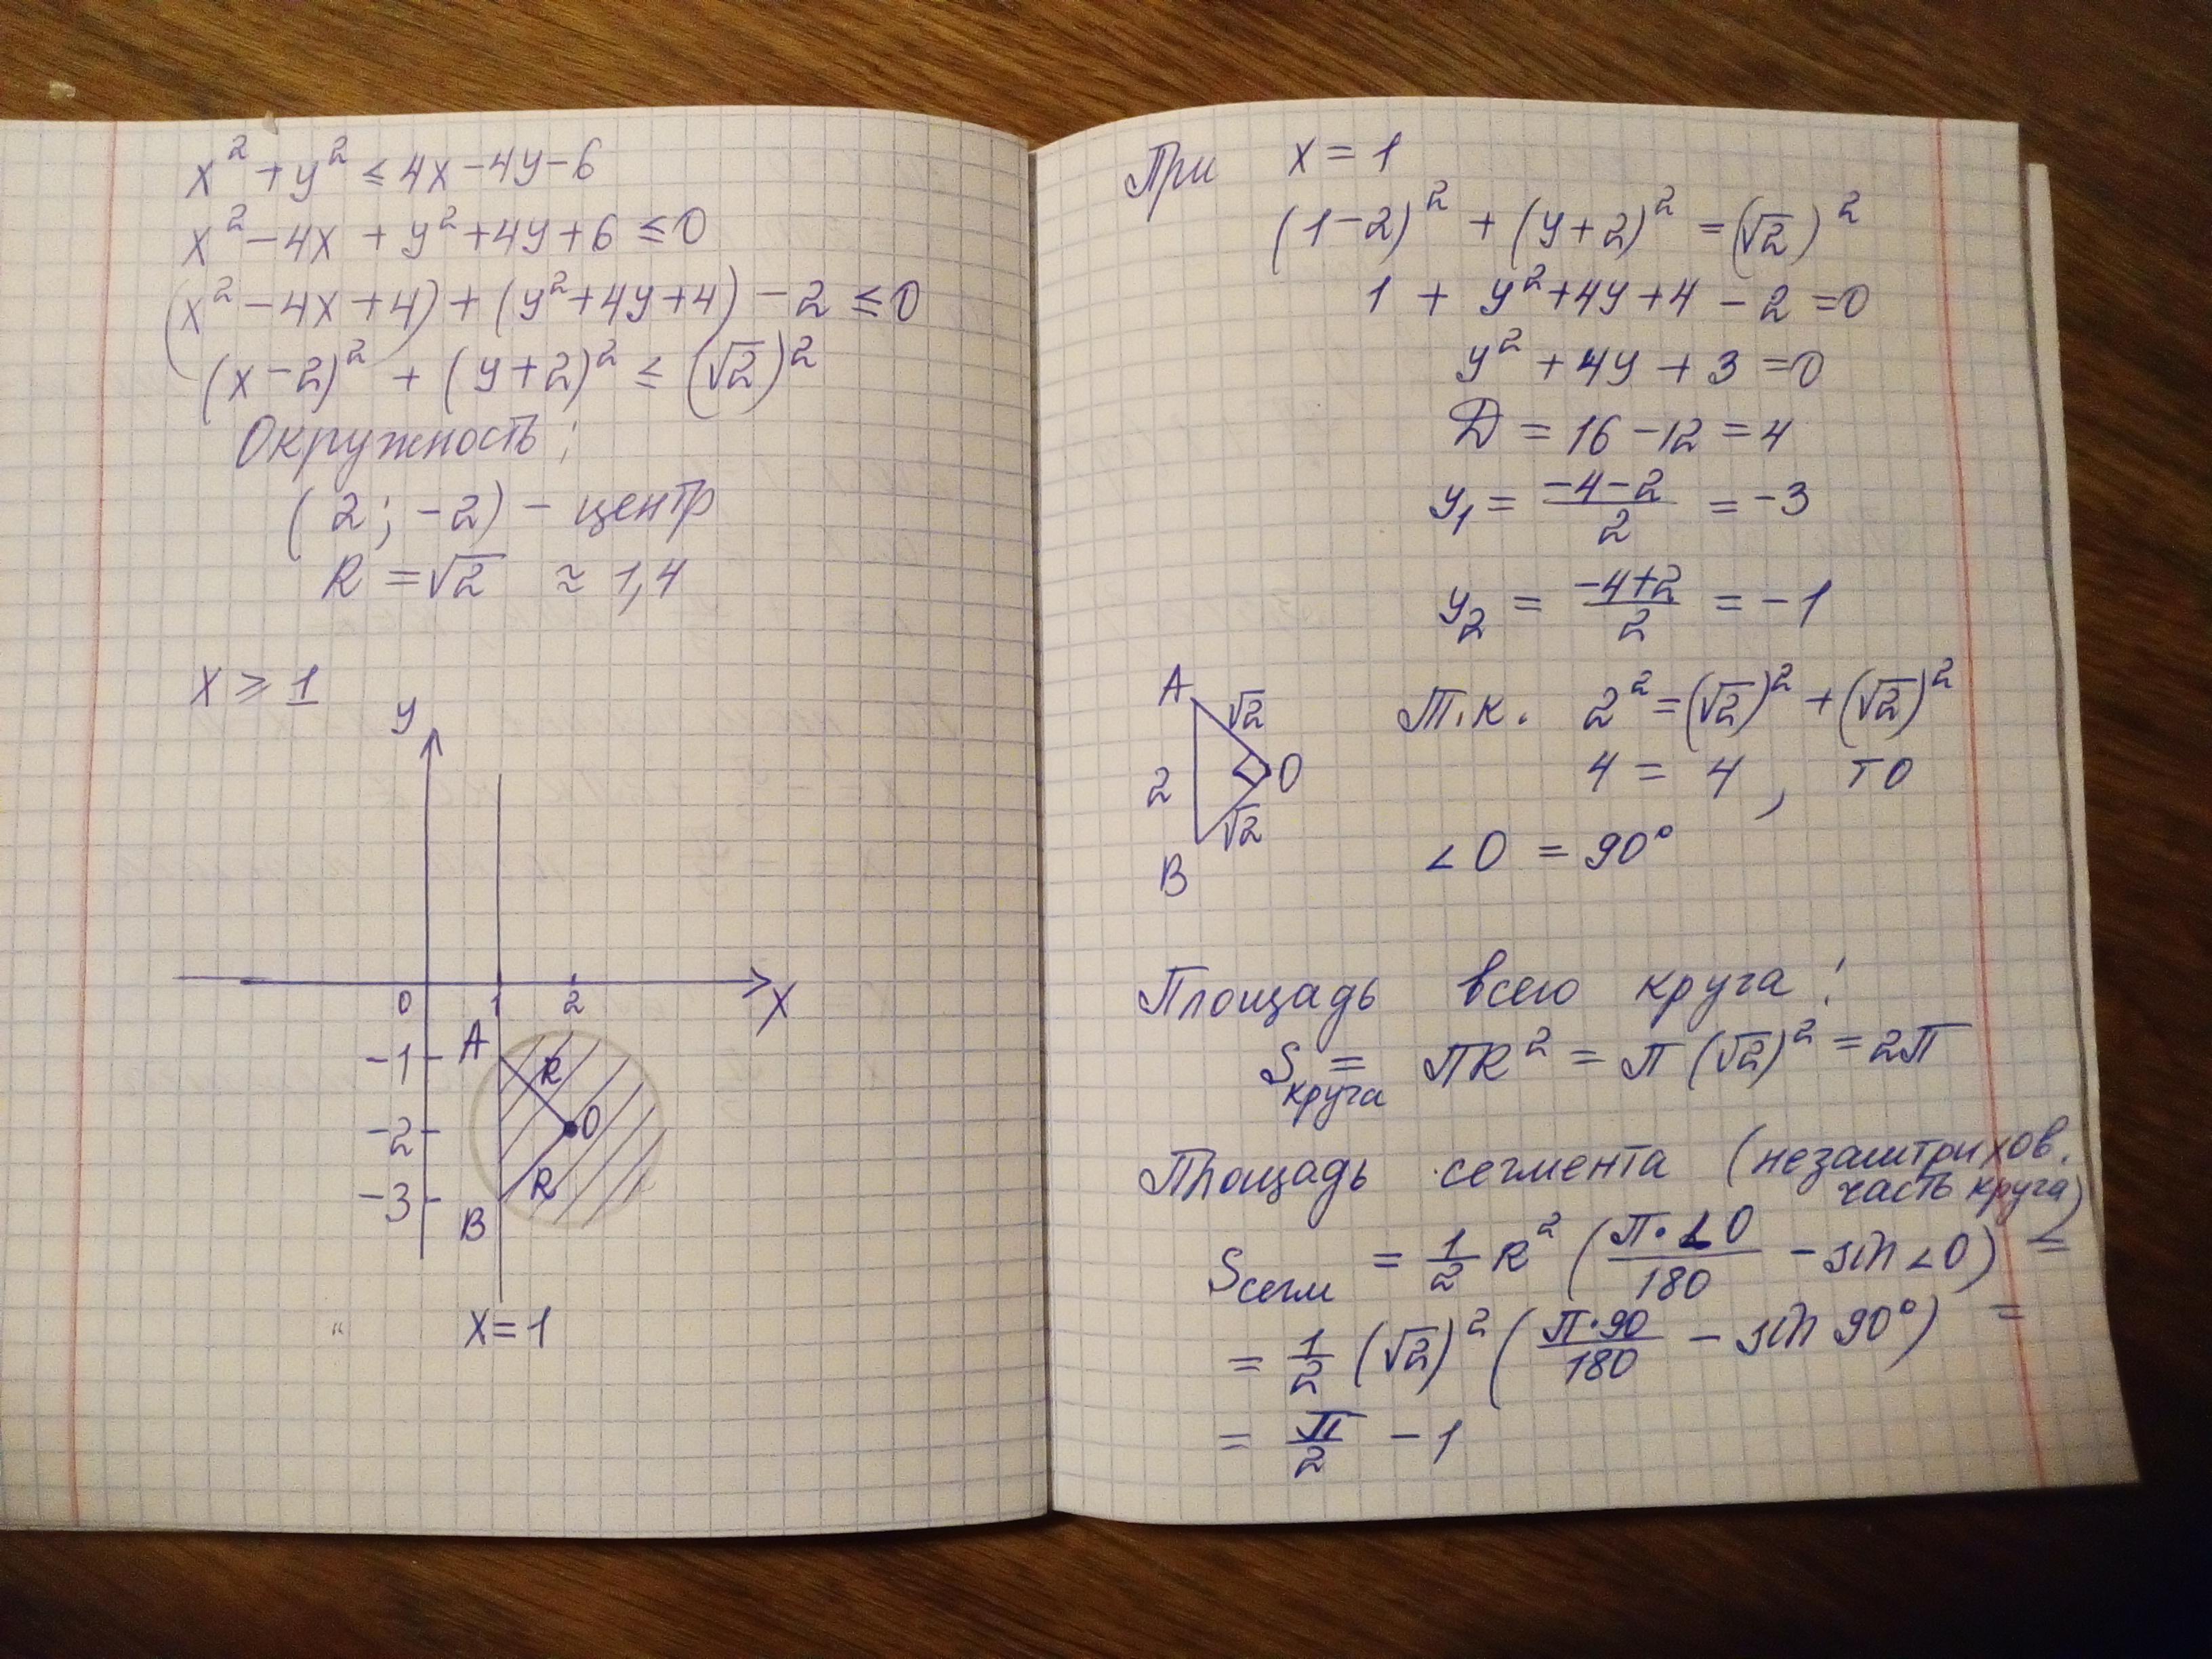 x² + y² ≤ 4x - 4y - 6
x² - 4x + y² + 4y + 6 ≤ 0
(x² - 4x + 4) + (y² + 4y + 4) - 2 ≤ 0
(x - 2)² + (y + 2)² ≤ (√2)²
Окружность:
(2; -2) - центр
R = √2 ≈ 1,4
x ≥ 1
y
0 1 2 x
-1 A R
-2 O
-3 R
B
x = 1
При x = 1
(1 - 2)² + (y + 2)² = (√2)²
1 + y² + 4y + 4 - 2 = 0
y² + 4y + 3 = 0
D = 16 - 12 = 4
y₁ = (-4 - 2)/2 = -3
y₂ = (-4 + 2)/2 = -1
A √2
2 O
√2
B
Т.к. 2² = (√2)² + (√2)²
4 = 4, то
∠O = 90°
Площадь всего круга:
S круга = ПR² = П(√2)² = 2П
Площадь сегмента (незаштрихов.
часть круга)
Sсегм = 1/2 R² (П·∠O/180 - sin ∠O) =
= 1/2 (√2)² (П·90/180 - sin 90°) =
= П/2 - 1